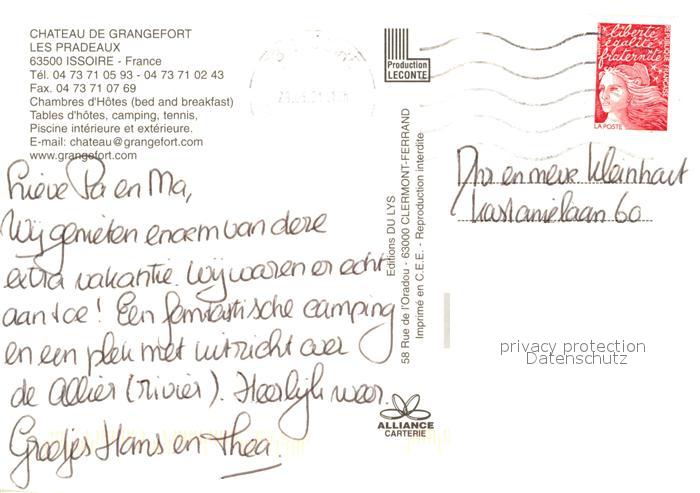 CHATEAU DE GRANGEFORT
LES PRADEAUX
63500 ISSOIRE - France
Tél. 04 73 71 05 93 - 04 73 71 02 43
Fax. 04 73 71 07 69
Chambres d'Hôtes (bed and breakfast)
Tables d'hôtes, camping, tennis,
Piscine intérieure et extérieure.
E-mail: chateau@grangefort.com
www.grangefort.com
Lieve Pa en Ma,
Wij genieten enorm van deze
extra vakantie. Wij waren er echt
aan toe! Een fantastische camping
en een plek met uitzicht over
de Allier (rivier). Heerlijk weer.
Groetjes Hans en Thea.
Production
LECONTE
Editions DU LYS
58 Rue de l'Oradou - 63000 CLERMONT-FERRAND
Imprimé en C.E.E. - Reproduction interdite
ALLIANCE
CARTERIE
liberté
égalité
fraternité
RÉPUBLIQUE FRANÇAISE
LA POSTE
en mevr Kleinhout
Kastanielaan 60
privacy protection
Datenschutz